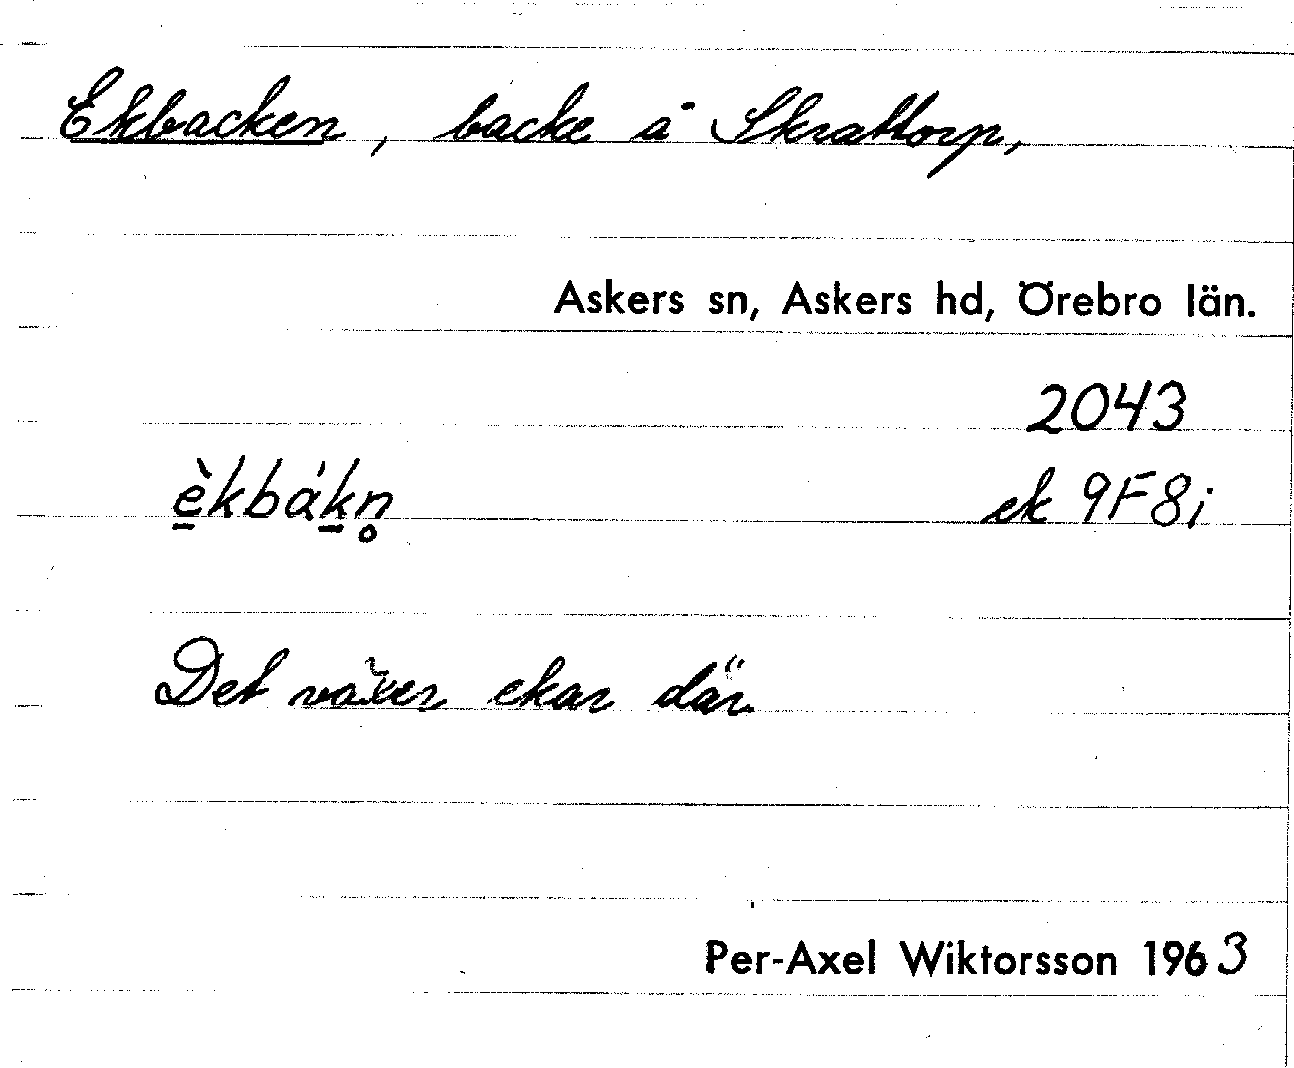 Ekbacken, backe å Skrattorp,
Askers sn, Askers hd, Örebro län.
2043
è̱kbáḵn̥ ek 9F8i
Det växer ekar där
Per-Axel Wiktorsson 1963